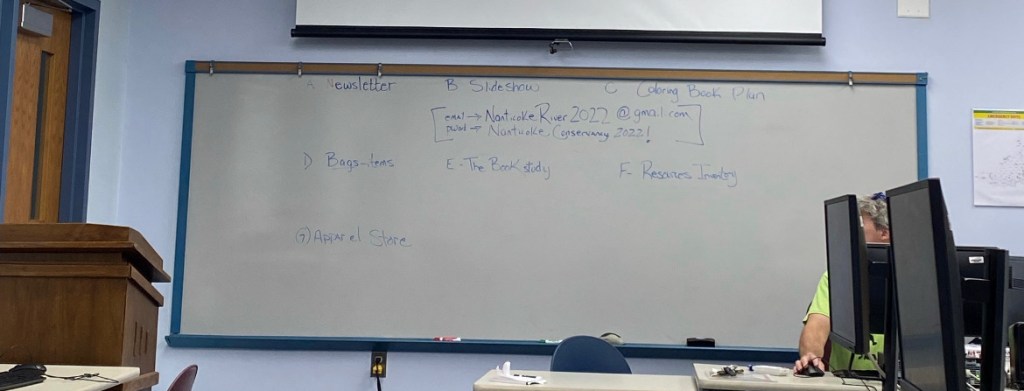 A Newsletter B Slideshow C Coloring Book Plan
email → NanticokeRiver2022 @gmail.com
Nanticoke Conservancy 2022!
D) Bags-items E - The Book study F- Resources Inventory
G) Apparel Store